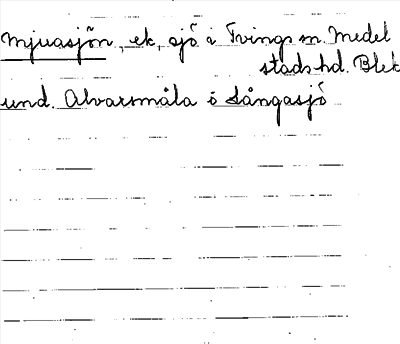 Mjuasjön, ek, sjö i Tvings sn. Medel
stads hd. Blek
und. Alvarsmåla ö Långasjö